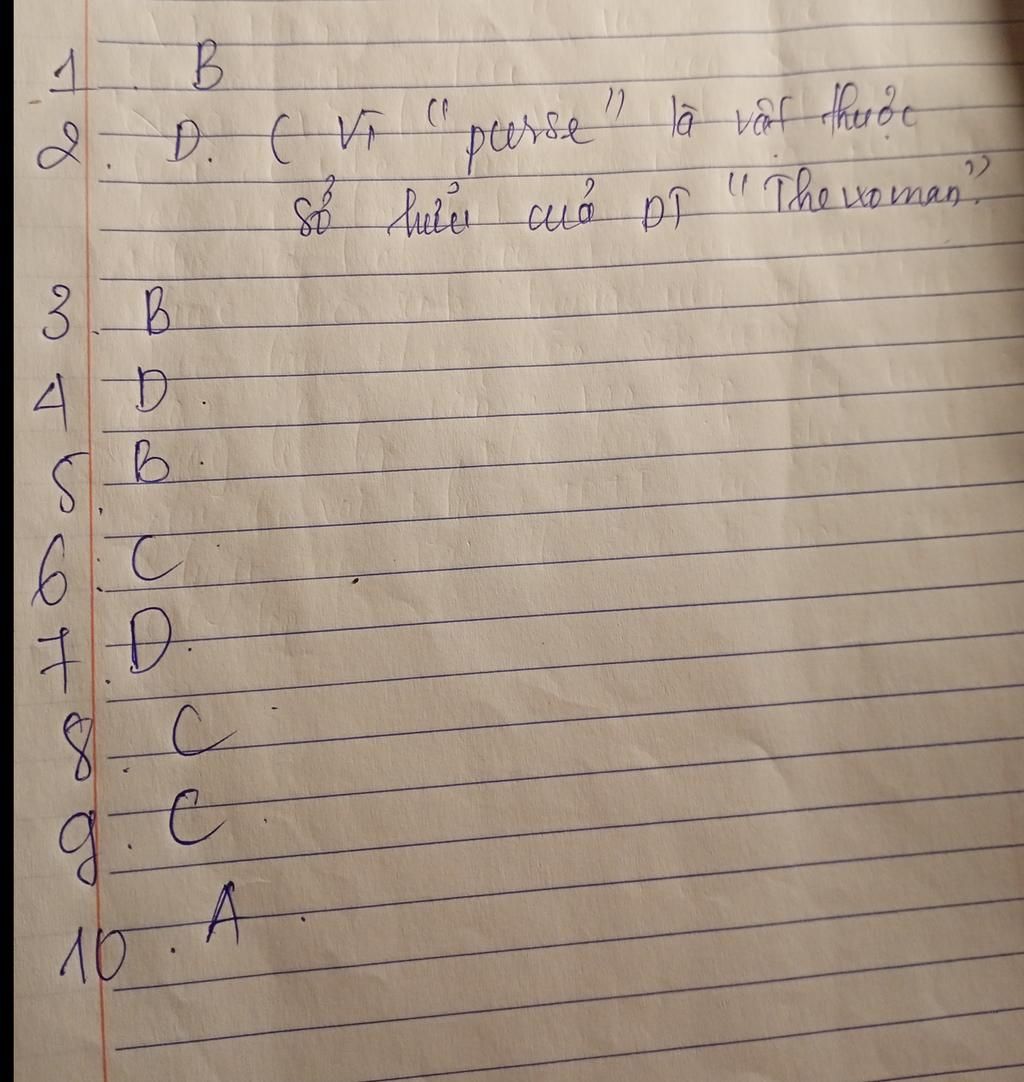 1. B
2. D. ( Vì "purse" là vật thuộc
sở hữu của DT "The woman".
3. B
4. D.
5. B.
6. C
7. D.
8. C
9. C.
10. A.